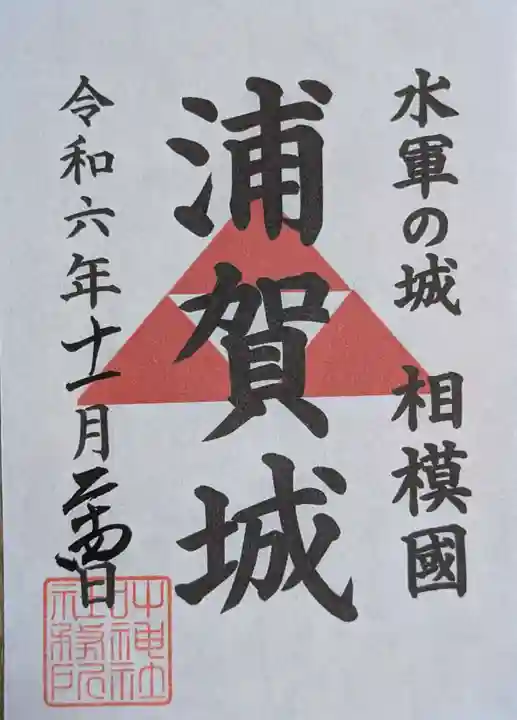 水軍の城 相模國
浦賀城
令和六年十一月二十四日
叶神社
社務所